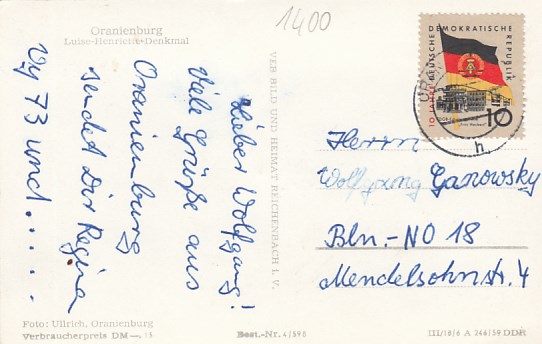 Oranienburg
Luise-Henriette-Denkmal
1400
Lieber Wolfgang!
Viele Grüße aus
Oranienburg
sendet Dir Regina
Vy 73 und.....
VEB BILD UND HEIMAT REICHENBACH I. V.
DEUTSCHE DEMOKRATISCHE REPUBLIK
10 JAHRE
10
h
Herrn
Wolfgang Ganowsky
Bln.-NO 18
Mendelsohnstr. 4
Foto: Ullrich, Oranienburg
Verbraucherpreis DM —,15
Best.-Nr. 4/598
III/18/6 A 246/59 DDR